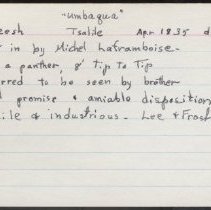 "umbaqua"
osh Tsalile Apr 1835 d
in by Michel Laframboise.
a panther, 8' Tip to Tip
rred to be seen by brother
promise & amiable disposition
ile & industrious. Lee & Frost